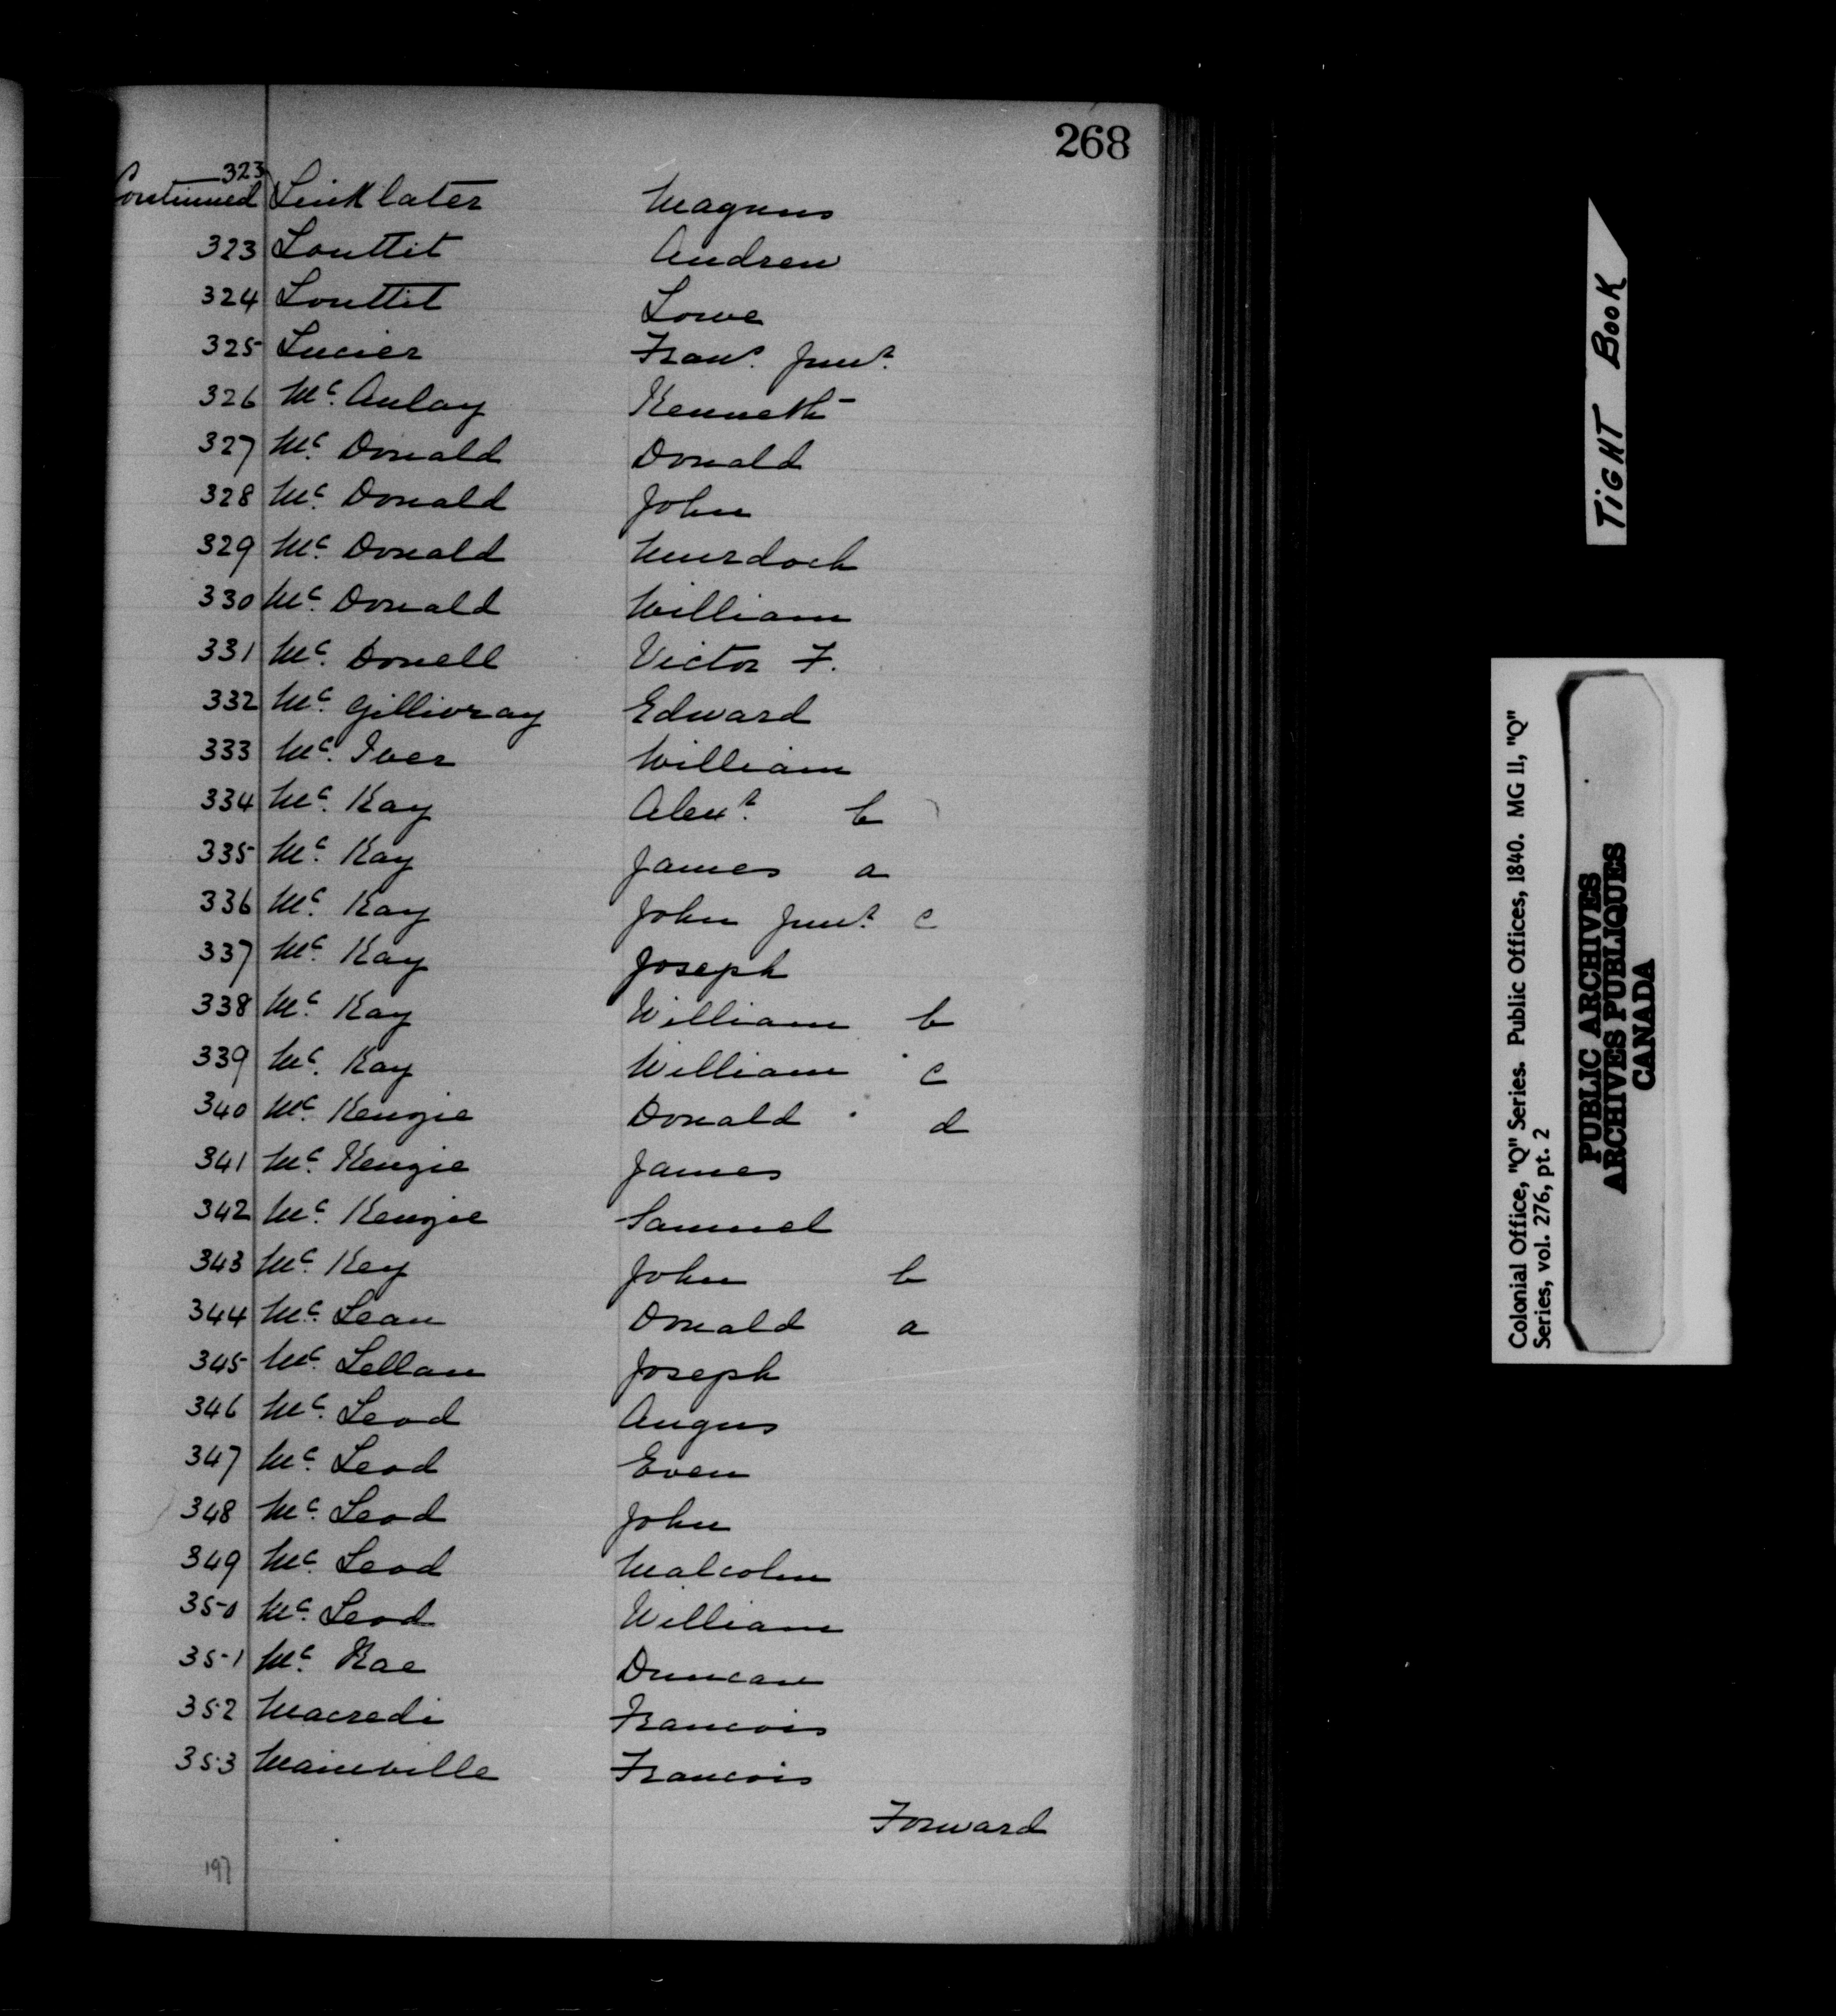 268
323
Continued Linklater Magnus
323 Louttit Andrew
324 Louttit Lowe
325 Lucier Frans. Junr.
326 Mc. Aulay Kenneth
327 Mc. Donald Donald
328 Mc. Donald John
329 Mc. Donald Murdoch
330 Mc. Donald William
331 Mc. Donell Victor F.
332 Mc. Gillivray Edward
333 Mc. Iver William
334 Mc. Kay Alexr. b
335 Mc. Kay James a
336 Mc. Kay John Junr. c
337 Mc. Kay Joseph
338 Mc. Kay William b
339 Mc. Kay William c
340 Mc. Kenzie Donald d
341 Mc. Kenzie James
342 Mc. Kenzie Samuel
343 Mc. Key John b
344 Mc. Lean Donald a
345 Mc. Lellan Joseph
346 Mc. Leod Angus
347 Mc. Leod Even
348 Mc. Leod John
349 Mc. Leod Malcolm
350 Mc. Leod William
351 Mc. Rae Duncan
352 Macredi Francois
353 Mainville Francois
Forward
197
TIGHT BOOK
Colonial Office, "Q" Series. Public Offices, 1840. MG 11, "Q"
Series, vol. 276, pt. 2
PUBLIC ARCHIVES
ARCHIVES PUBLIQUES
CANADA